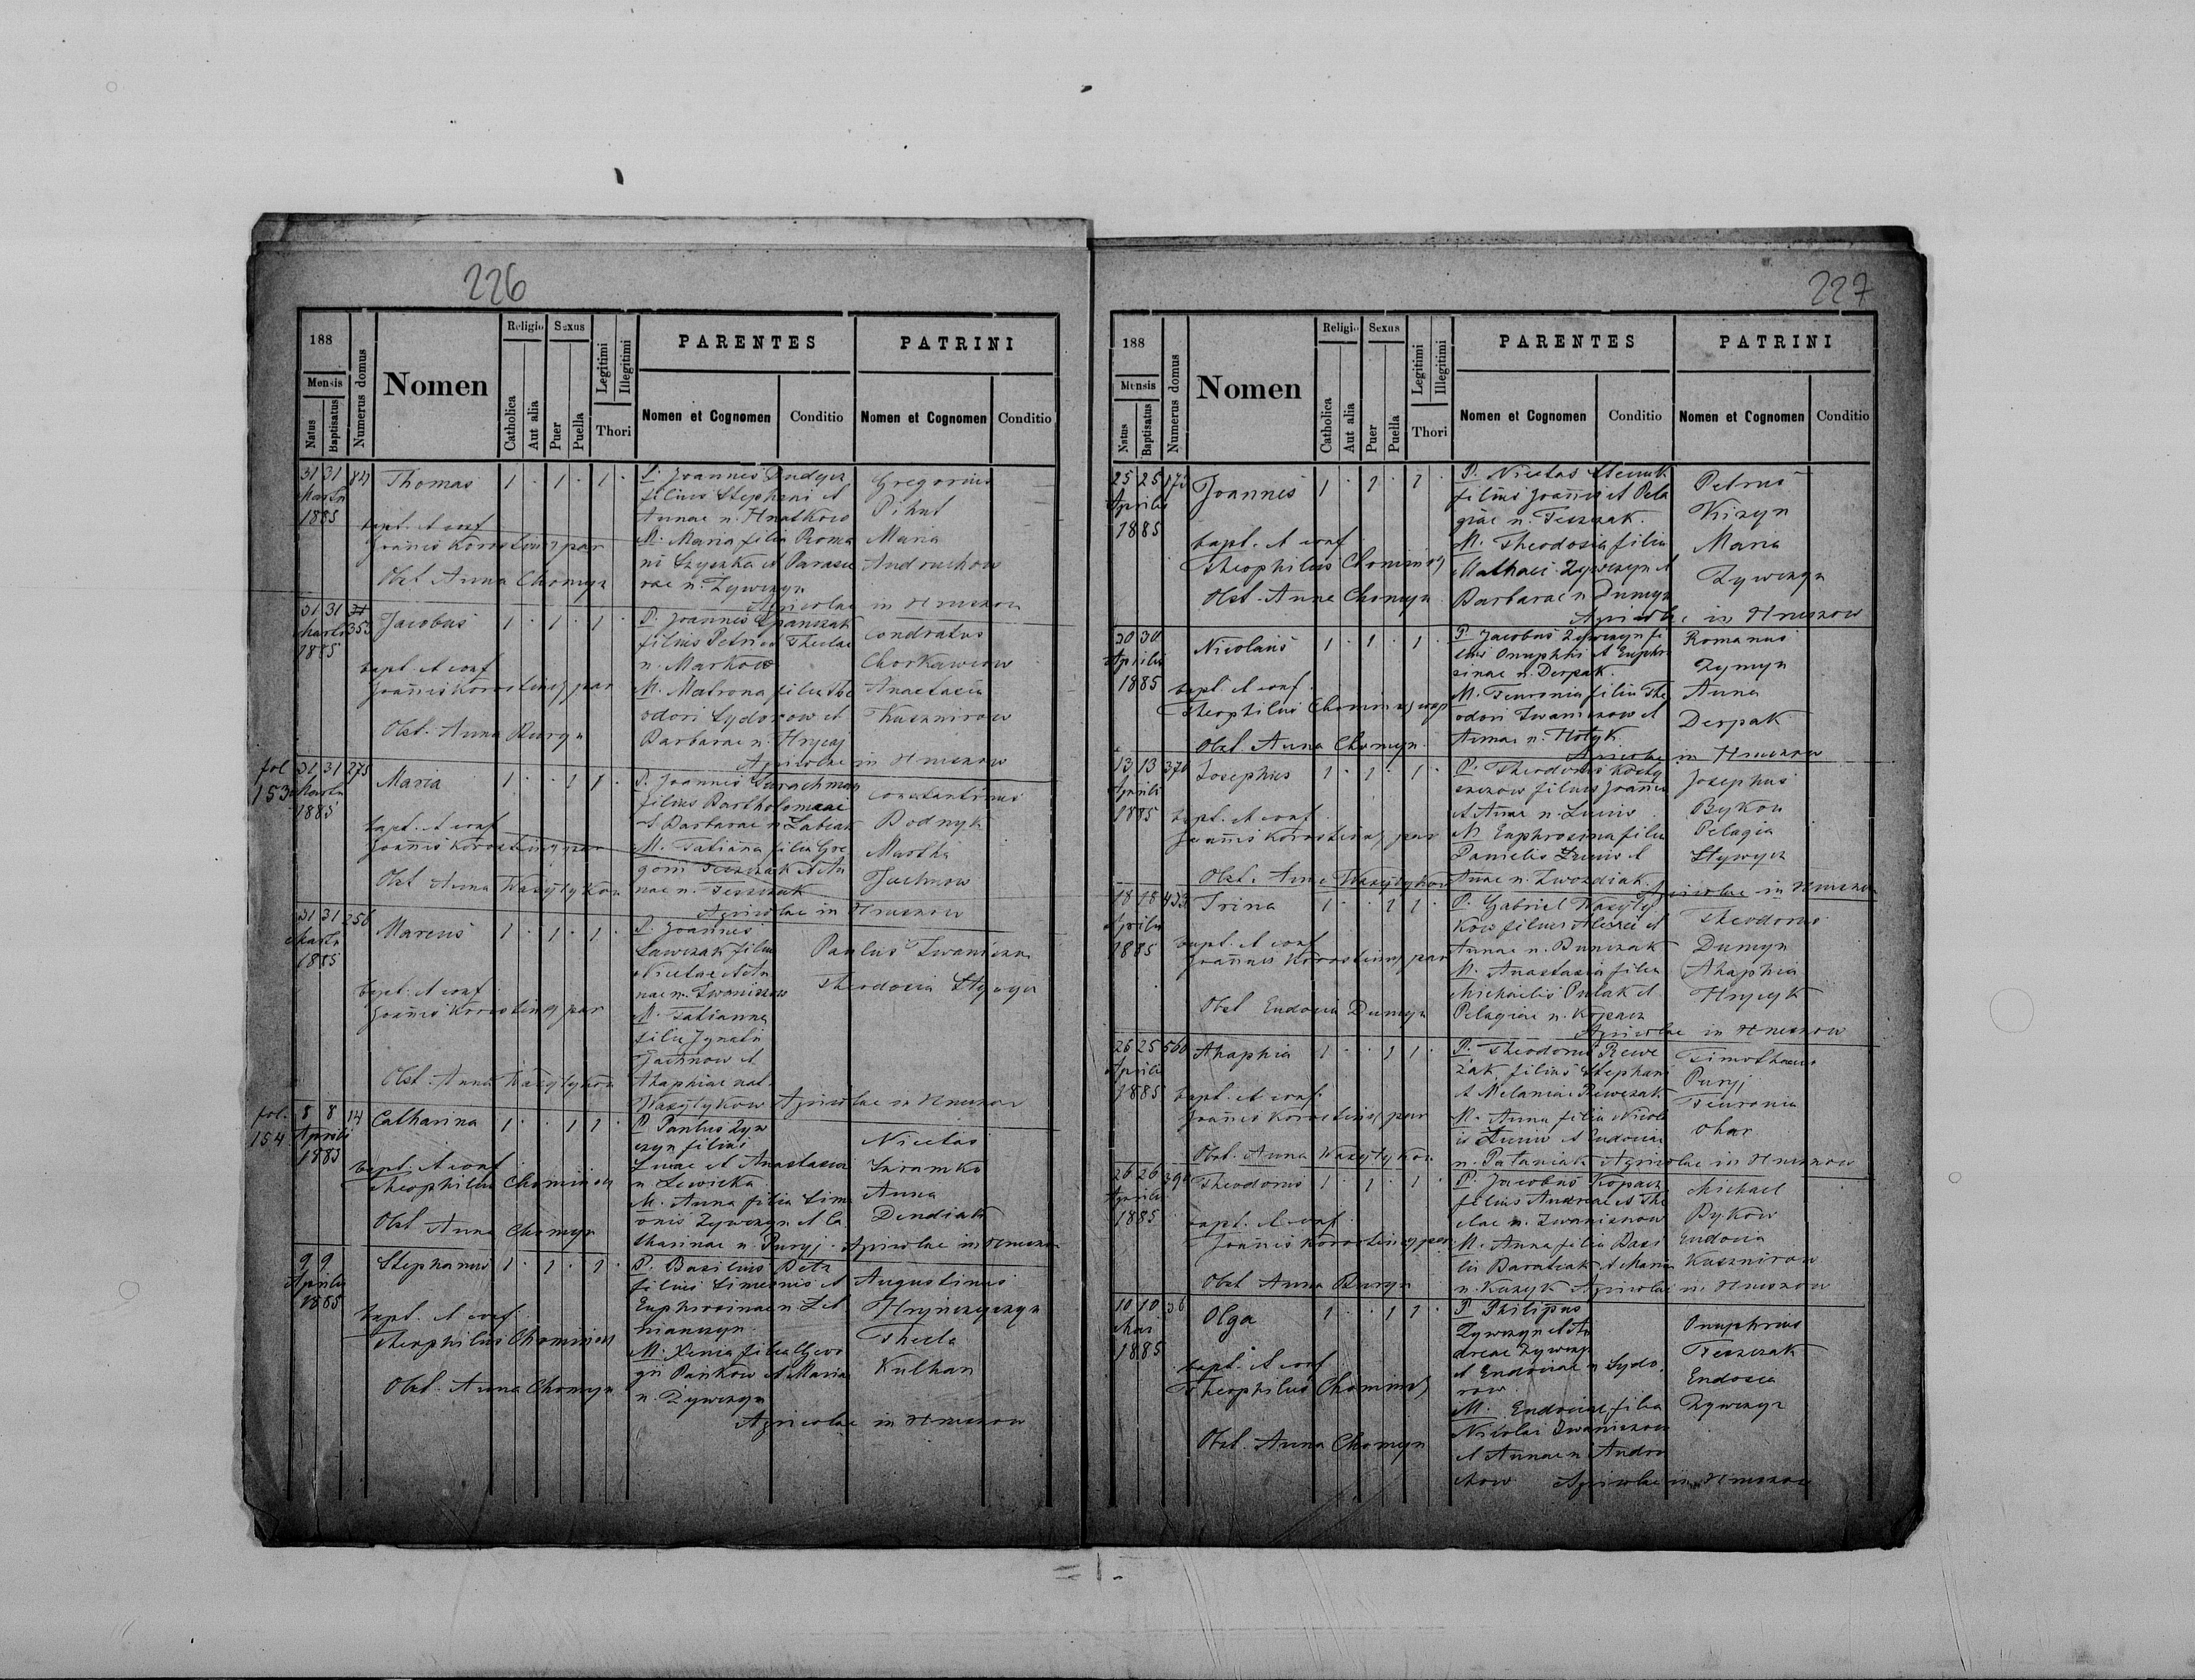 226
188
Mensis
Natus
Baptisatus
Numerus domus
Nomen
Religio
Catholica
Aut alia
Sexus
Puer
Puella
Legitimi
Illegitimi
Thori
PARENTES
Nomen et Cognomen
Conditio
PATRINI
Nomen et Cognomen
Conditio
31 31 84
Martii
1885
Thomas
1 · 1 · 1 ·
bapt. et conf
Joannes Korostinsz par
Obst Anna Chomyn
P. Joannes
filius Stephani et
Annae n. Hnatkow
M. Maria filia Roma
ni Szyszka et Parasce
vae n. Zywczyn
Agricolae in Hruszow
Gregorius
Pihut
Maria
Andruchow
31 31
353
Martii
1885
Jacobus
1 · 1 · 1 ·
bapt. et conf
Joannes Korostinsz par
Obst. Anna Buryn
P. Joannes
filius Petri et Theclae
n. Markow
M. Matrona filia The
odori Sydorow et
Barbarae n. Hrycaj
Agricolae in Hruszow
Condratus
Anastasia
Kusznirow
fol
153
31 31 275
Martii
1885
Maria
1 · · 1 1 ·
bapt. et conf
Joannes Korostinsz par
Obst Anna Wasylykow
P. Joannes
filius Bartholomaei
et Barbarae n.
M. Tatianna filia Gre
gorii Teszczak et An
nae n. Teszczak
Agricolae in Hruszow
Constantinus
Bodnyk
Martha
Jachnow
31 31 256
Martii
1885
Marcus
1 · 1 · 1 ·
bapt. et conf
Joannes Korostinsz par
Obst. Anna Wasylykow
P. Joannes
Sawczak filius
Nicetae et An
nae n. Iwaniszow
M. Tatianna
filia Ignatii
Jachnow et
Ahaphiae nat.
Wasylykow Agricolae in Hruszow
Paulus
Theodosia
fol.
154
8 8 14
Aprilis
1885
Catharina
1 · · 1 1 ·
bapt. et conf
Theophilus Chominsz
Obst Anna Chomyn
P. Paulus Zyw
czyn filius
Lucae et Anastasiae
n. Lewicka
M. Anna filia Sime
onis Zywczyn et Ca
tharinae n. Puryj. Agricolae in Hruszow
Nicetas
Anna
Dendiak
9 9
Aprilis
1885
Stephanus
1 · 1 · 1 ·
bapt. et conf
Theophilus Chominsz
Obst. Anna Chomyn
P. Basilius Petz
filius Simeonis et
Euphrosinae n.
M. Xenia filia Geor
gii Pankow et Maria
n. Zywczyn
Agricolae in Hruszow
Augustinus
Thecla
Kulhan
227
188
Mensis
Natus
Baptisatus
Numerus domus
Nomen
Religio
Catholica
Aut alia
Sexus
Puer
Puella
Legitimi
Illegitimi
Thori
PARENTES
Nomen et Cognomen
Conditio
PATRINI
Nomen et Cognomen
Conditio
25 25 173
Aprilis
1885
Joannes
1 · 1 · 1 ·
bapt. et conf
Theophilus Chominsz
Obst. Anna Chomyn
P. Nicetas
filius Joannis et Pela
giae n. Teszczak.
M. Theodosia filia
Mathaei Zywczyn et
Barbarae n Dumyn
Agricolae in Hruszow
Petrus
Kizyn
Maria
Zywczyn
30 30
Aprilis
1885
Nicolaus
1 · 1 · 1 ·
bapt. et conf.
Theophilus Chominsz
Obst. Anna Chomyn
P. Jacobus Zywczyn fi
lius Onuphrii et Euphro
sinae n. Derpak.
M. Feuronia filia The
odori Iwaniszow et
Annae n. Holyk.
Agricolae in Hruszow
Romanus
Zymyn
Anna
Derpak
13 13 370
Aprilis
1885
Josephus
1 · 1 · 1 ·
bapt. et conf.
Joannes Korostinsz par
Obst. Anna Wasylykow
P. Theodorus
filius Joannis
et Annae n.
M. Euphrosina filia
Danielis et
Annae n. Zwozdiak.
Agricolae in Hruszow
Josephus
Bykow
Pelagia
18 18 433
Aprilis
1885
Irina
1 · · 1 1 ·
bapt. et conf
Joannes Korostinsz par
Obst Eudocia Dumyn
P. Gabriel Wasyly
kow filius Alexii et
Annae n.
M. Anastasia filia
Michaelis et
Pelagiae n. Kopacz
Agricolae in Hruszow
Theodorus
Dumyn
Ahaphia
Hrycyk
26 25 560
Aprilis
1885
Ahaphia
1 · · 1 1 ·
bapt. et conf.
Joannes Korostinsz par
Obst. Anna Wasylykow
P. Theodorus Rewe
zak filius Stephani
et Melaniae Rewczak
M. Anna filia Nicola
et Eudociae
n. Agricolae in Hruszow
Timotheus
Puryj
Feuronia
26 26 390
Aprilis
1885
Theodorus
1 · 1 · 1 ·
bapt. et conf.
Joannes Korostinsz par
Obst Anna Buryn
P. Jacobus Kopacz
filius Andreae et The
clae n. Iwaniszow
M. Anna filia Basi
lii et Maria
n. Kuzyk Agricolae in Hruszow
Michael
Bykow
Eudocia
Kusznirow
10 10 36
Mai
1885
Olga
1 · · 1 1 ·
bapt. et conf
Theophilus Chominsz
Obst. Anna Chomyn
P. Philipus
Zywczyn et An
dreae Zywczyn
et Eudociae n Sydo
row
M. Eudociae filia
Nicolai Iwaniszow
et Annae n Andru
chow Agricolae in Hruszow
Onuphrius
Teszczak
Eudocia
Zywczyn